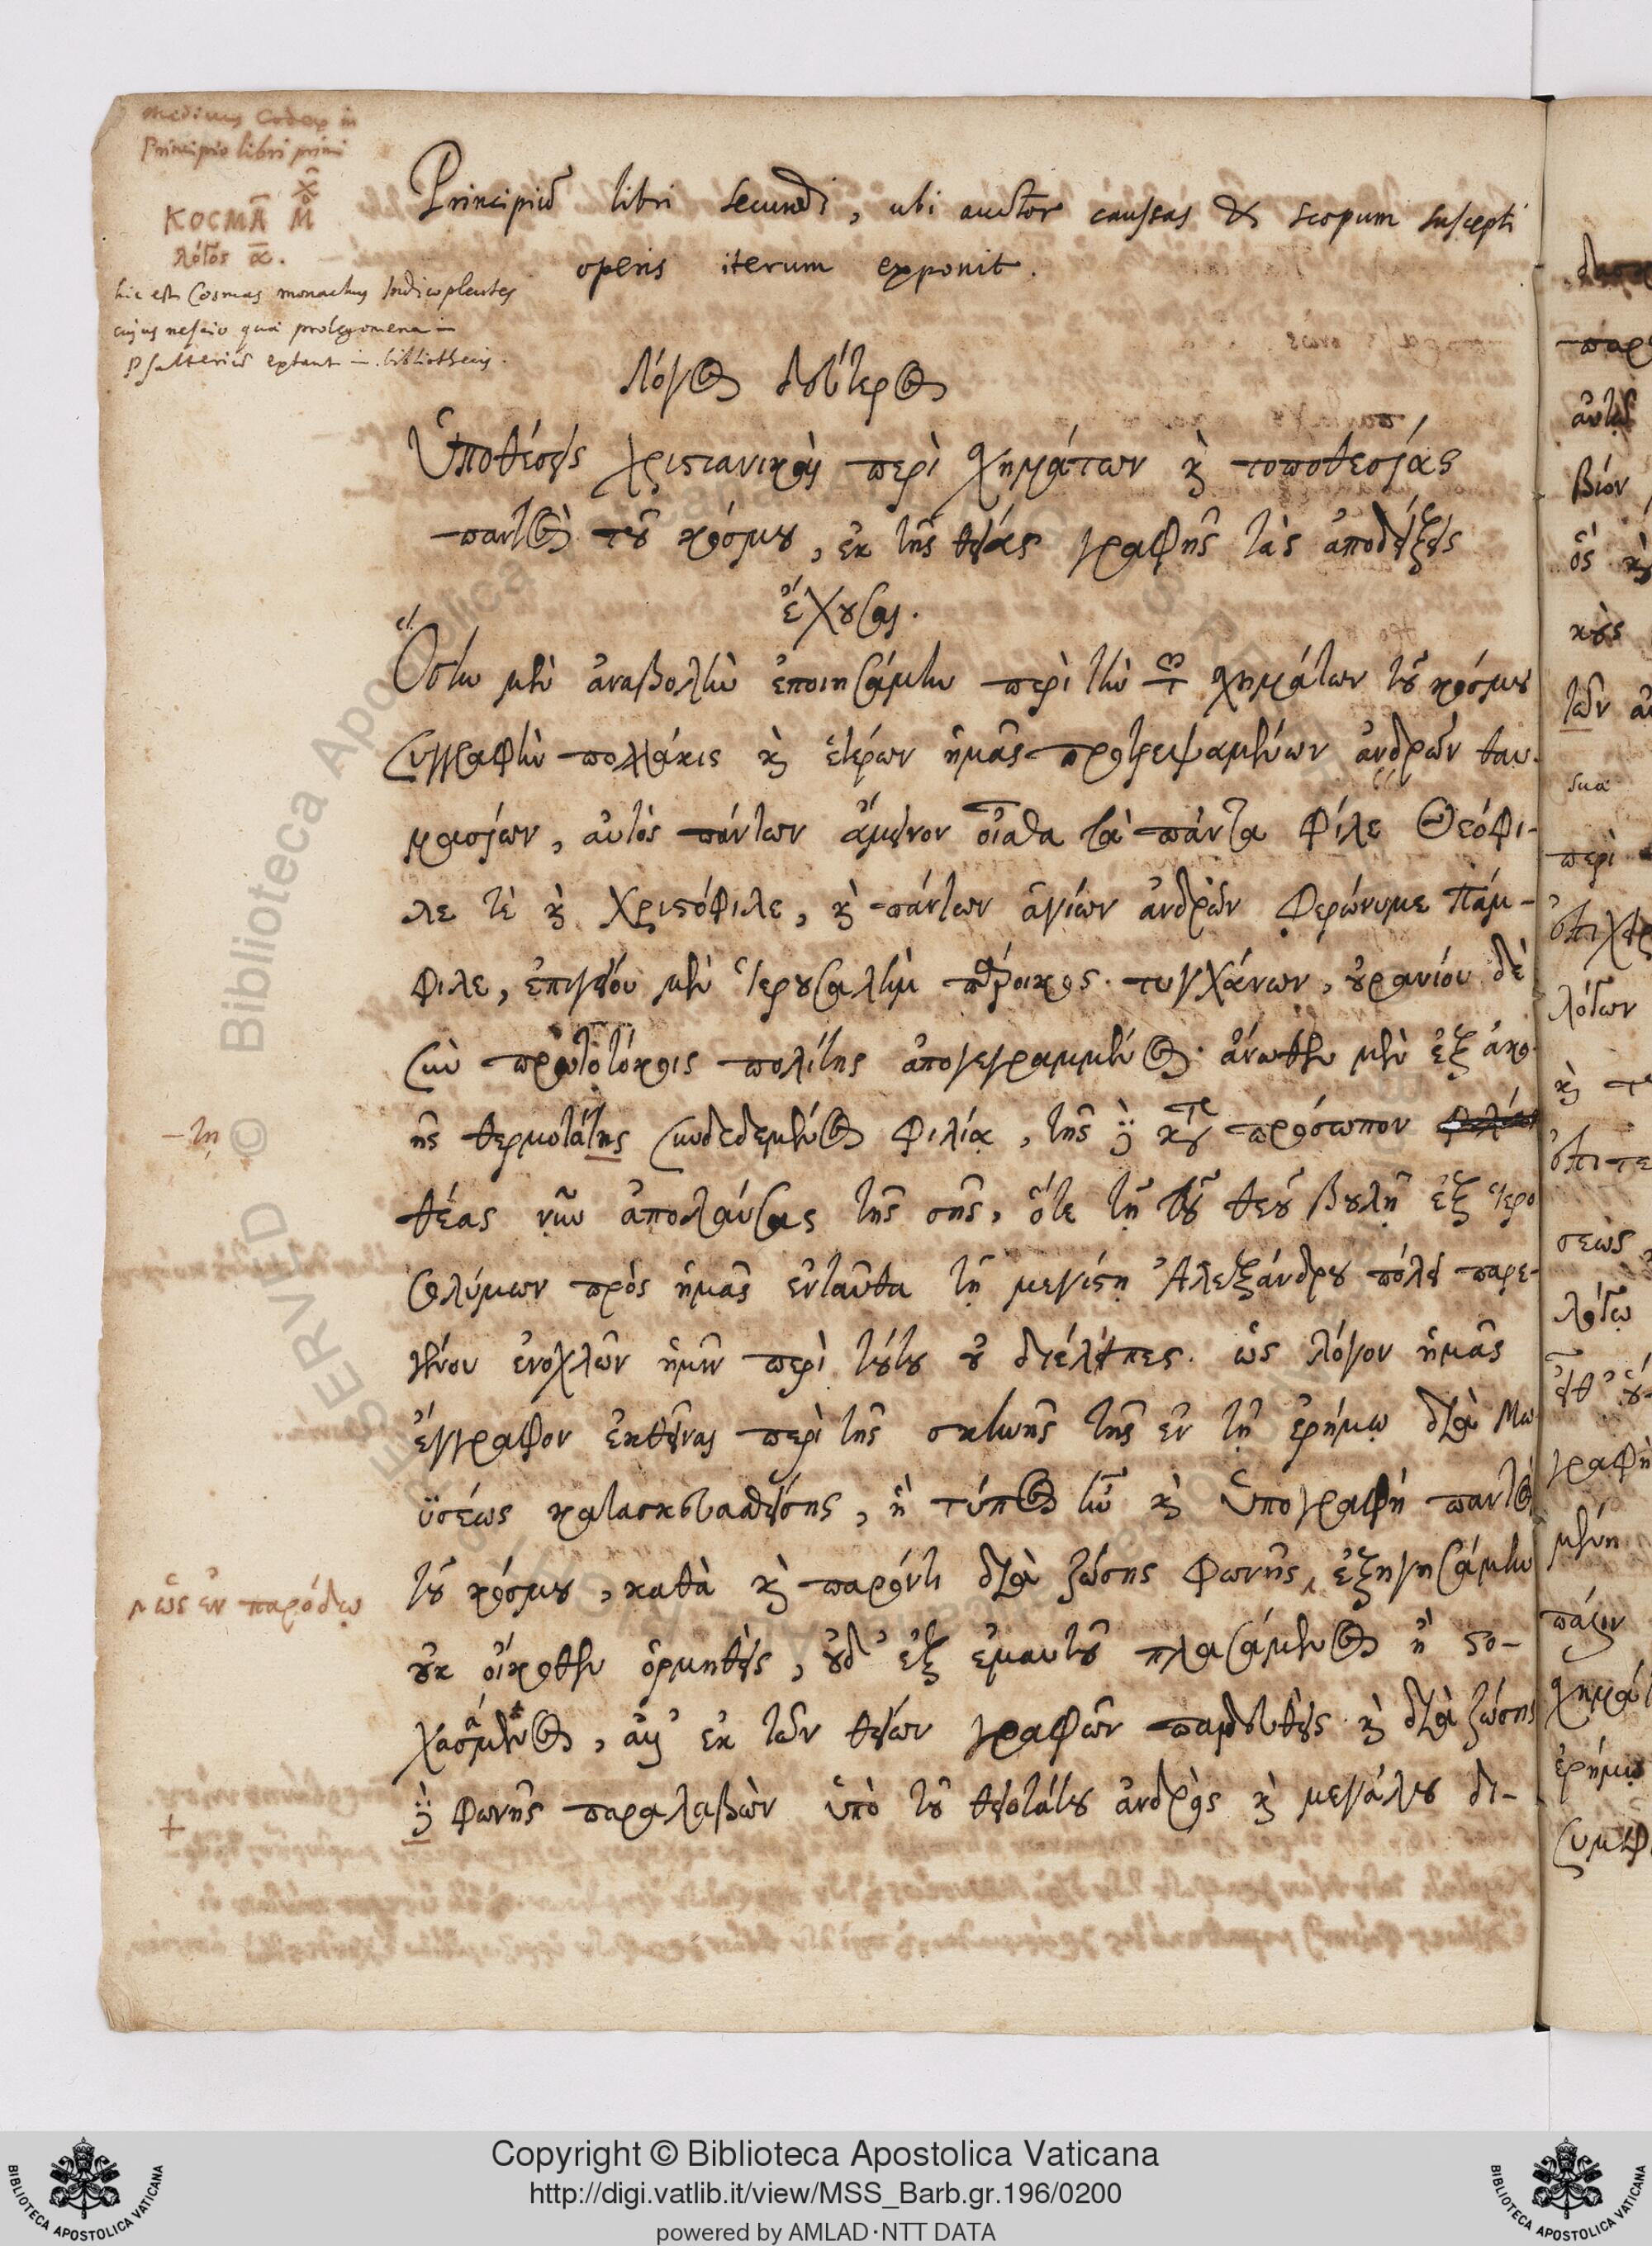 Mediceus Codex in
Principio libri primi
ΚΟCΜᾶ Μ̄χ
λόγος α.
hic est Cosmas monachus Indicopleutes
cujus nescio quae prolegomena in
Psalterium extant in bibliothecis.
Principiū libri secundi, ubi auctor caussas & scopum suscepti
operis iterum exponit.
Λόγος δεύτερος
Ὑποθέσεις χριστιανικαὶ περὶ σχημάτων καὶ τοποθεσίας
παντὸς τοῦ κόσμου, ἐκ τῆς θείας γραφῆς τὰς ἀποδείξεις
ἔχουσαι.
Ὅστω μὲν ἀναβολὴν ἐποιησάμην περὶ τὴν τῶν σχημάτων τοῦ κόσμου
συγγραφὴν πολλάκις καὶ ἑτέρων ἡμᾶς προτρεψαμένων ἀνδρῶν θαυ-
μασίων, αὐτὸς πάντων ἄμεινον οἶσθα τὰ πάντα φίλε Θεόφι-
λε τὲ καὶ Χριστόφιλε, καὶ πάντων ἁγίων ἀνδρῶν φερώνυμε Πάμ-
φιλε, ἐπιγείου μὲν Ἱερουσαλὴμ πάροικος τυγχάνων, οὐρανίου δὲ
σὺν πρωτοτόκοις πολίτης ἀπογεγραμμένος. ἄνωθεν μὲν ἐξ ἀκο-
ῆς θερμοτάτης συνδεδεμένος φιλίᾳ, τῆς δὲ κατὰ πρόσωπον
θέας νῦν ἀπολαύσας τῆς σῆς, ὅτε τῇ τοῦ θεοῦ βουλῇ ἐξ Ἱερο
σολύμων πρὸς ἡμᾶς ἐνταῦθα τῇ μεγίστῃ Ἀλεξάνδρου πόλει παρε-
γένου ἐνοχλῶν ἡμῖν περὶ τούτου οὐ διέλειπες. ὡς λόγον ἡμᾶς
ἔγγραφον ἐκθεῖναι περὶ τῆς σκηνῆς τῆς ἐν τῇ ἐρήμῳ διὰ Μω
ϋσέως κατασκευασθείσης, ἡ τύπος ἦν καὶ ὑπογραφὴ παντὸς
τοῦ κόσμου, καθὰ καὶ παρόντι διὰ ζώσης φωνῆς, ἐξηγησάμην
οὐκ οἴκοθεν ὁρμηθεὶς, οὐδ' ἐξ ἐμαυτοῦ πλασάμενος ἢ στο-
χασάμενος, ἀλλ' ἐκ τῶν θείων γραφῶν παιδευθεὶς καὶ διὰ ζώσης
δὲ φωνῆς παραλαβὼν ὑπὸ τοῦ θειοτάτου ἀνδρὸς καὶ μεγάλου δι-
–τῃ
ὡς ἐν παρόδῳ
+
βίον
λόγων
περὶ
σεὼς
μένη
Copyright © Biblioteca Apostolica Vaticana
http://digi.vatlib.it/view/MSS_Barb.gr.196/0200
powered by AMLAD·NTT DATA
BIBLIOTECA APOSTOLICA VATICANA
BIBLIOTECA APOSTOLICA VATICANA